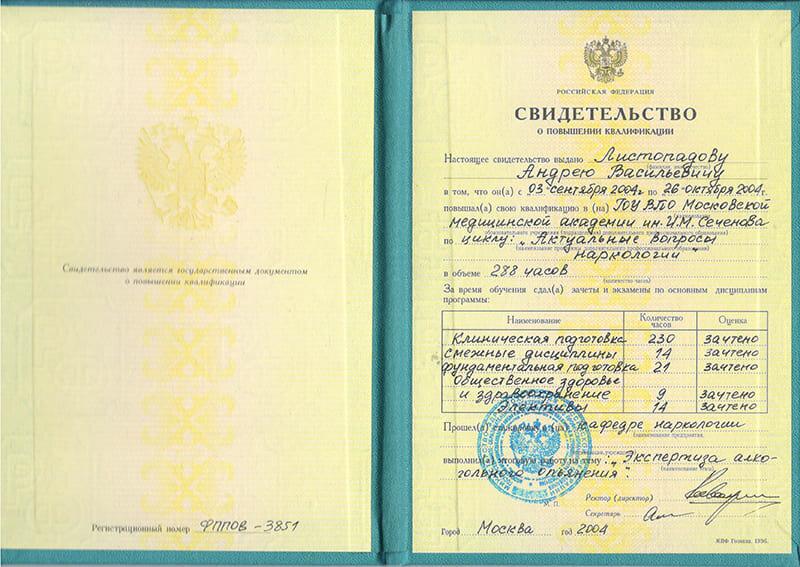 Свидетельство является государственным документом
о повышении квалификации
Регистрационный номер ФППОВ-3851
РОССИЙСКАЯ ФЕДЕРАЦИЯ
СВИДЕТЕЛЬСТВО
О ПОВЫШЕНИИ КВАЛИФИКАЦИИ
Настоящее свидетельство выдано Листопадову
(фамилия, имя, отчество)
Андрею Васильевичу
в том, что он(а) с 03 сентября 2004 г. по 26 октября 2004 г.
повышал(а) свою квалификацию в (на) ГОУ ВПО Московской
медицинской академии им. И.М. Сеченова
образовательного учреждения (подразделения) дополнительного профессионального образования)
по циклу: „Актуальные вопросы
(наименование программы дополнительного профессионального образования)
наркологии"
в объеме 288 часов
(количество часов)
За время обучения сдал(а) зачеты и экзамены по основным дисциплинам
программы:
Наименование Количество часов Оценка
Клиническая подготовка 230 зачтено
смежные дисциплины 14 зачтено
фундаментальная подготовка 21 зачтено
Общественное здоровье
и здравоохранение 9 зачтено
Элективы 14 зачтено
Прошел(а) стажировку в (на) кафедре наркологии
(наименование предприятия,
выполнил(а) итоговую работу на тему: „Экспертиза алко-
(наименование темы)
гольного опьянения".
М. П.
Ректор (директор)
Секретарь
Город Москва год 2004
КПФ Гознака. 1996.